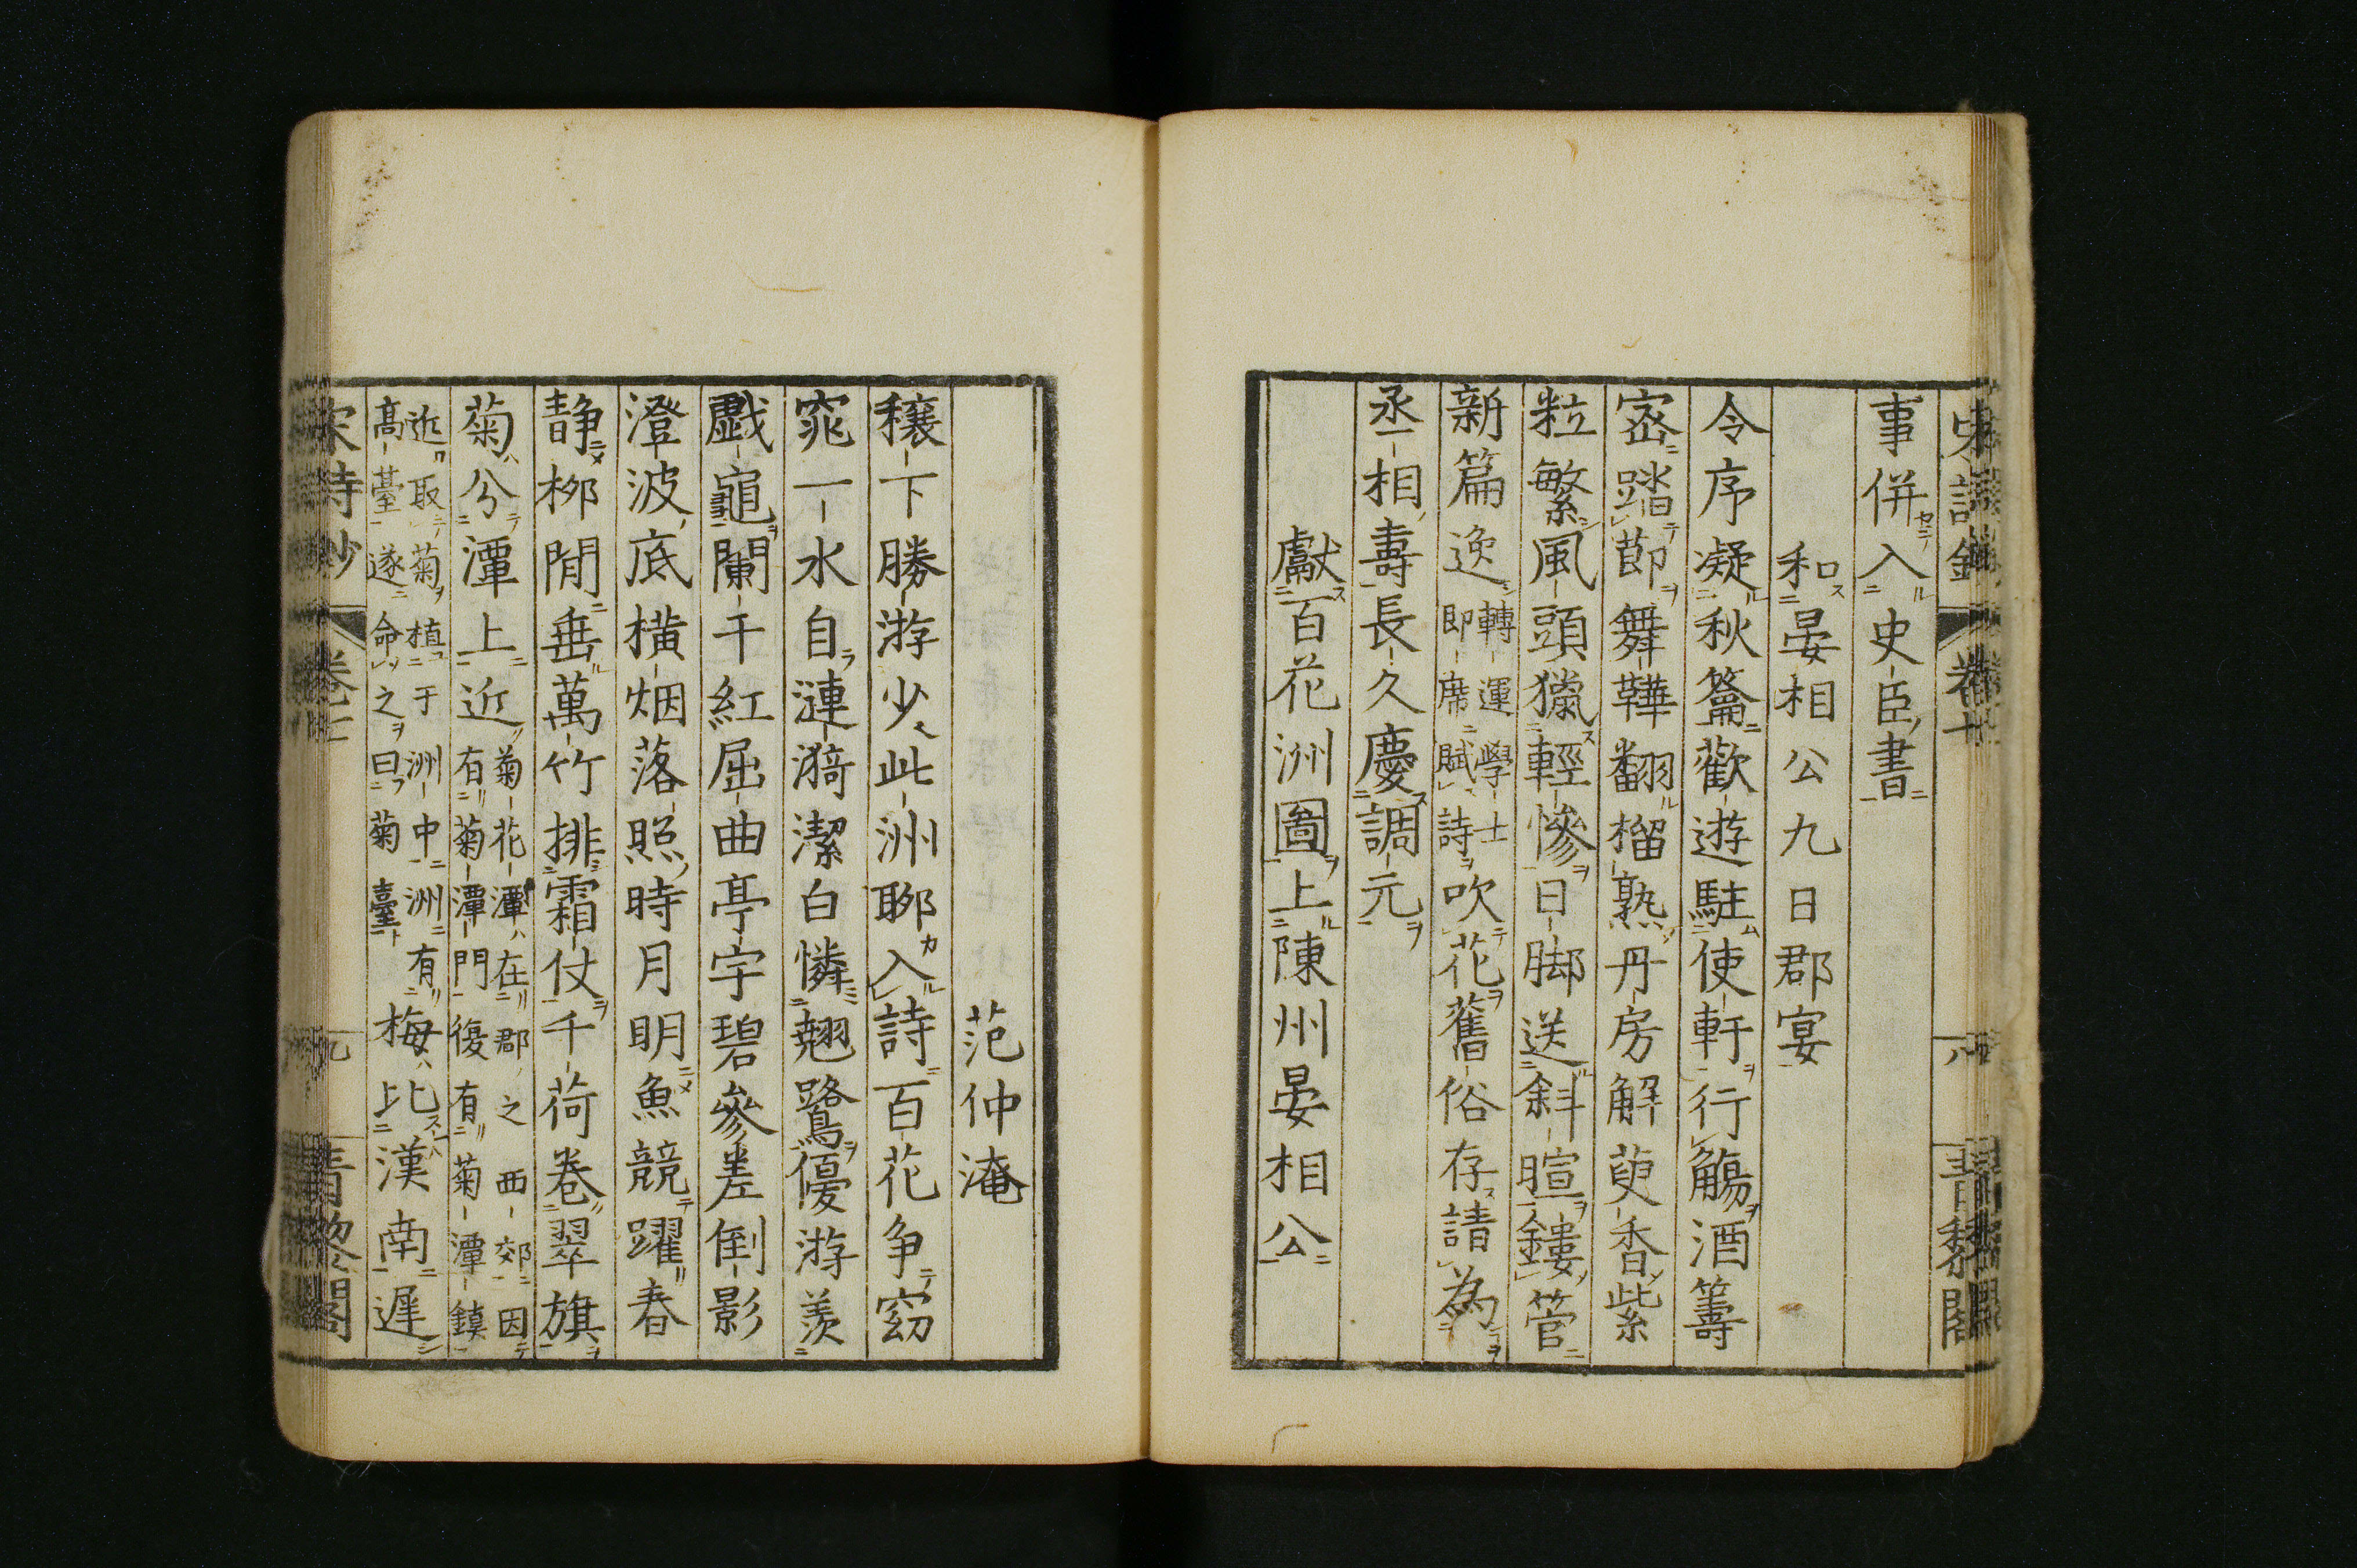 事併入史臣書
和晏相公九日郡宴
令序凝秋籥歡遊駐使軒行觴酒籌
宻踏節舞鞾翻榴熟丹房解萸香紫
粒繁風頭獵輕慘日脚送斜暄鏤管
新篇逸轉運學士即席賦詩吹花舊俗存請為
丞相壽長久慶調元
獻百花洲圖上陳州晏相公
范仲淹
穰下勝游少此洲聊入詩百花争窈
窕一水自漣漪潔白憐翹鷺優游羨
戯龜闌干紅屈曲亭宇碧參差倒影
澄波底橫烟落照時月明魚競躍春
静栁閒垂萬竹排霜仗千荷卷翠旗
菊分潭上近菊花潭在郡之西郊因有菊潭門復有菊潭鎮
近取菊植于洲中洲有高臺遂命之曰菊臺梅比漢南遲
宋詩鈔
卷七
九
青黎閣